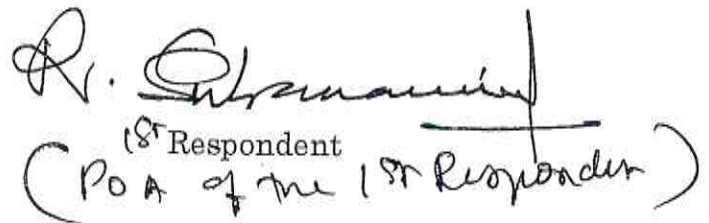 R. Subramanian
1st Respondent
(POA of the 1st Respondent)